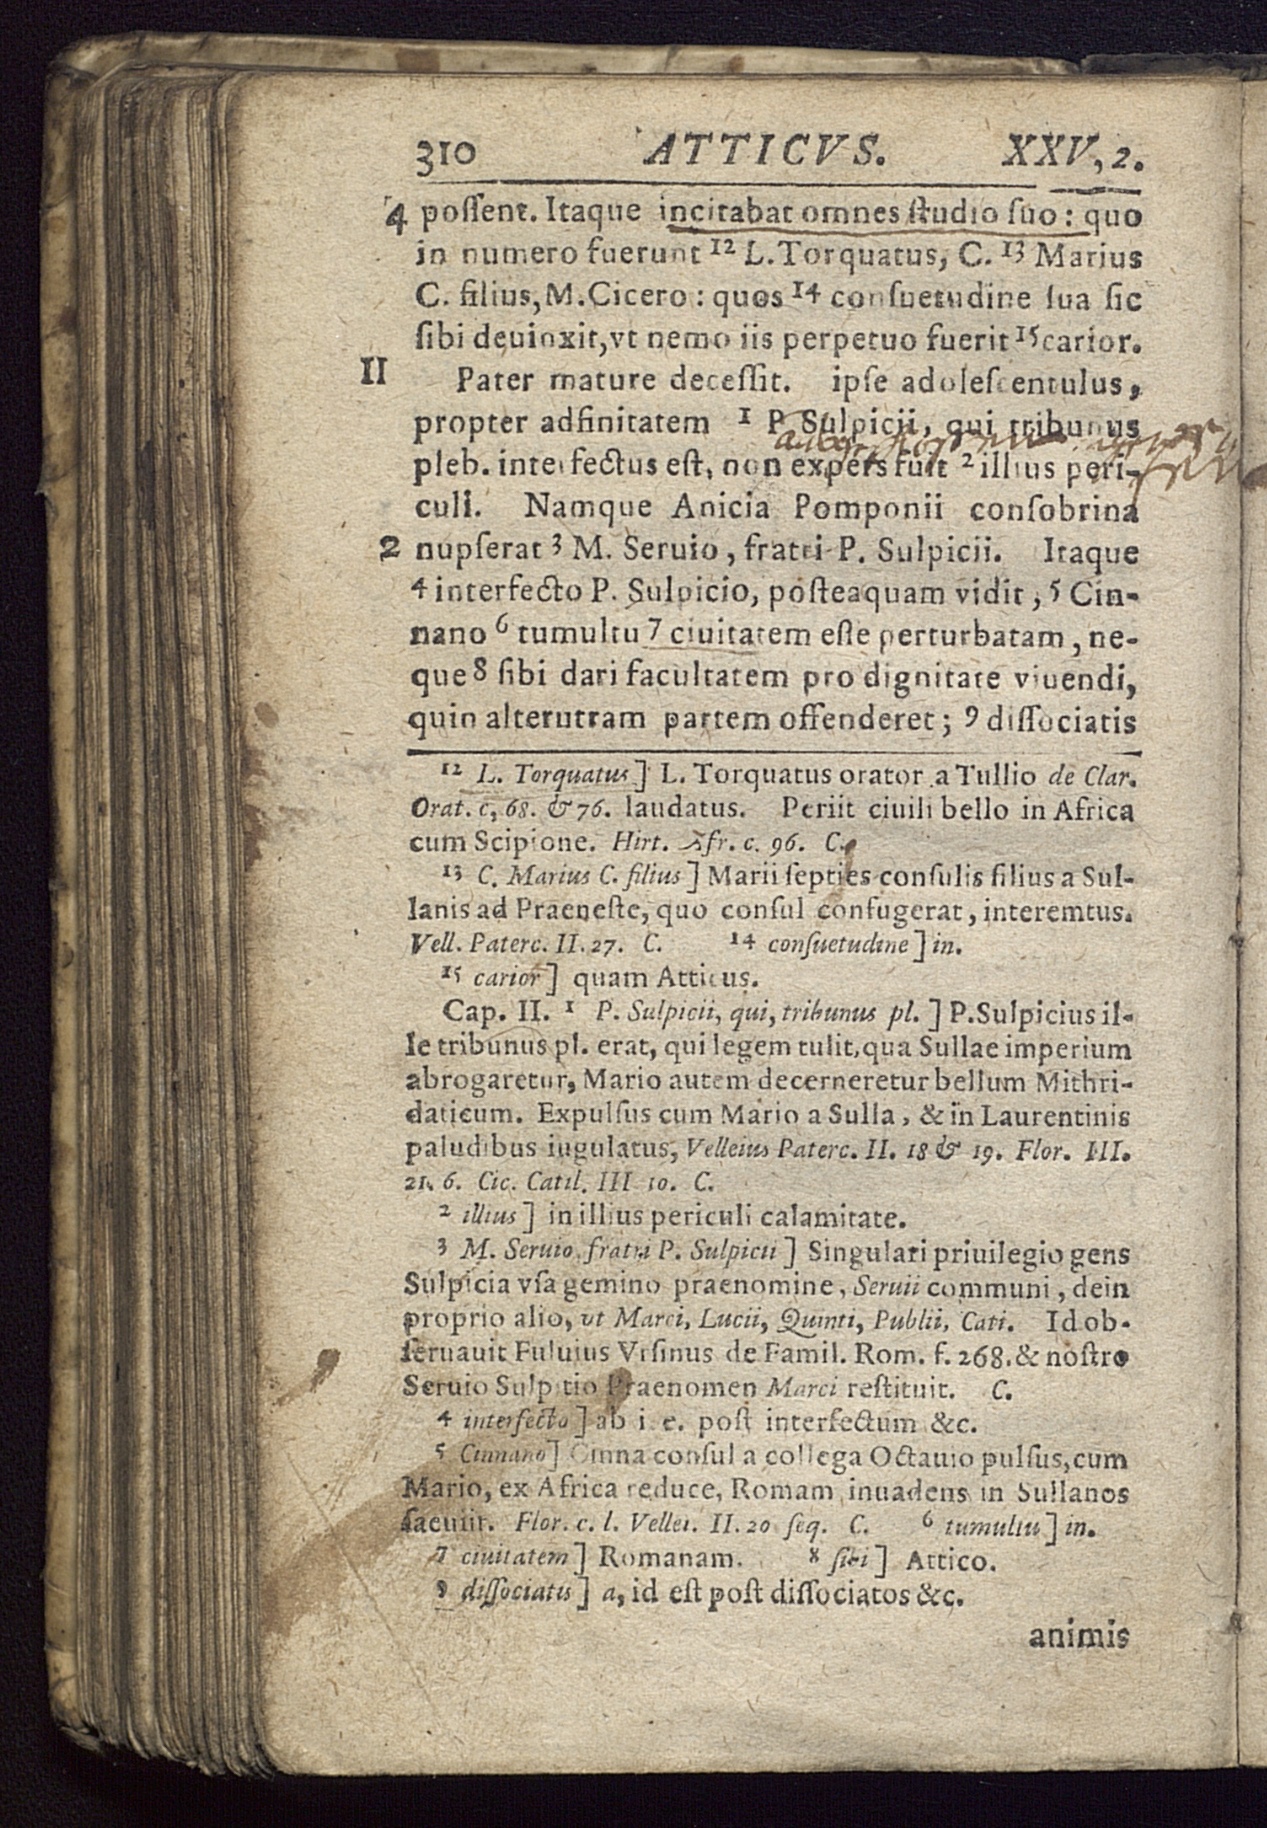 310 ATTICVS. XXV, 2.
4 possent. Itaque incitabat omnes studio suo: quo
in numero fuerunt 12 L. Torquatus, C. 13 Marius
C. filius, M. Cicero: quos 14 consuetudine sua sic
sibi deuinxit, vt nemo iis perpetuo fuerit 15 carior.
II Pater mature decessit. ipse adolescentulus,
propter adfinitatem 1 P. Sulpicii, qui tribunus
pleb. interfectus est, non expers fuit 2 illius peri-
culi. Namque Anicia Pomponii consobrina
2 nupserat 3 M. Seruio, fratri P. Sulpicii. Itaque
4 interfecto P. Sulpicio, posteaquam vidit, 5 Cin-
nano 6 tumultu 7 ciuitatem esse perturbatam, ne-
que 8 sibi dari facultatem pro dignitate viuendi,
quin alterutram partem offenderet; 9 dissociatis
12 L. Torquatus] L. Torquatus orator a Tullio de Clar.
Orat. c, 68. & 76. laudatus. Periit ciuili bello in Africa
cum Scipione. Hirt. Afr. c. 96. C.
13 C. Marius C. filius] Marii septies consulis filius a Sul-
lanis ad Praeneste, quo consul confugerat, interemtus.
Vell. Paterc. II. 27. C. 14 consuetudine] in.
15 carior] quam Atticus.
Cap. II. 1 P. Sulpicii, qui, tribunus pl.] P. Sulpicius il-
le tribunus pl. erat, qui legem tulit, qua Sullae imperium
abrogaretur, Mario autem decerneretur bellum Mithri-
daticum. Expulsus cum Mario a Sulla, & in Laurentinis
paludibus iugulatus, Velleius Paterc. II. 18 & 19. Flor. III.
21. 6. Cic. Catil. III 10. C.
2 illius] in illius periculi calamitate.
3 M. Seruio, fratri P. Sulpicii] Singulari priuilegio gens
Sulpicia vsa gemino praenomine, Seruii communi, dein
proprio alio, vt Marci, Lucii, Quinti, Publii, Cati. Id ob-
seruauit Fuluius Vrsinus de Famil. Rom. f. 268. & nostro
Seruio Sulpitio Praenomen Marci restituit. C.
4 interfecto] ab i. e. post interfectum &c.
5 Cinnano] Cinna consul a collega Octauio pulsus, cum
Mario, ex Africa reduce, Romam inuadens in Sullanos
saeuiit. Flor. c. l. Vellei. II. 20 seq. C. 6 tumultu] in.
7 ciuitatem] Romanam. 8 sibi] Attico.
9 dissociatis] a, id est post dissociatos &c.
animis